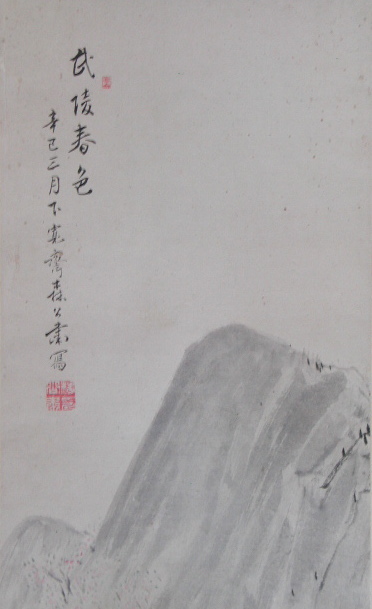 武陵春色
辛巳三月下完齋森公肅寫